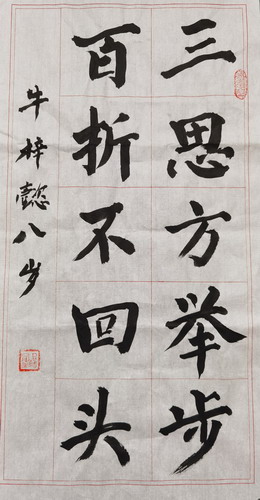 三思方举步
百折不回头
牛梓懿八岁